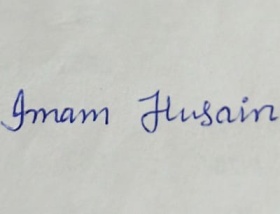 Imam Husain